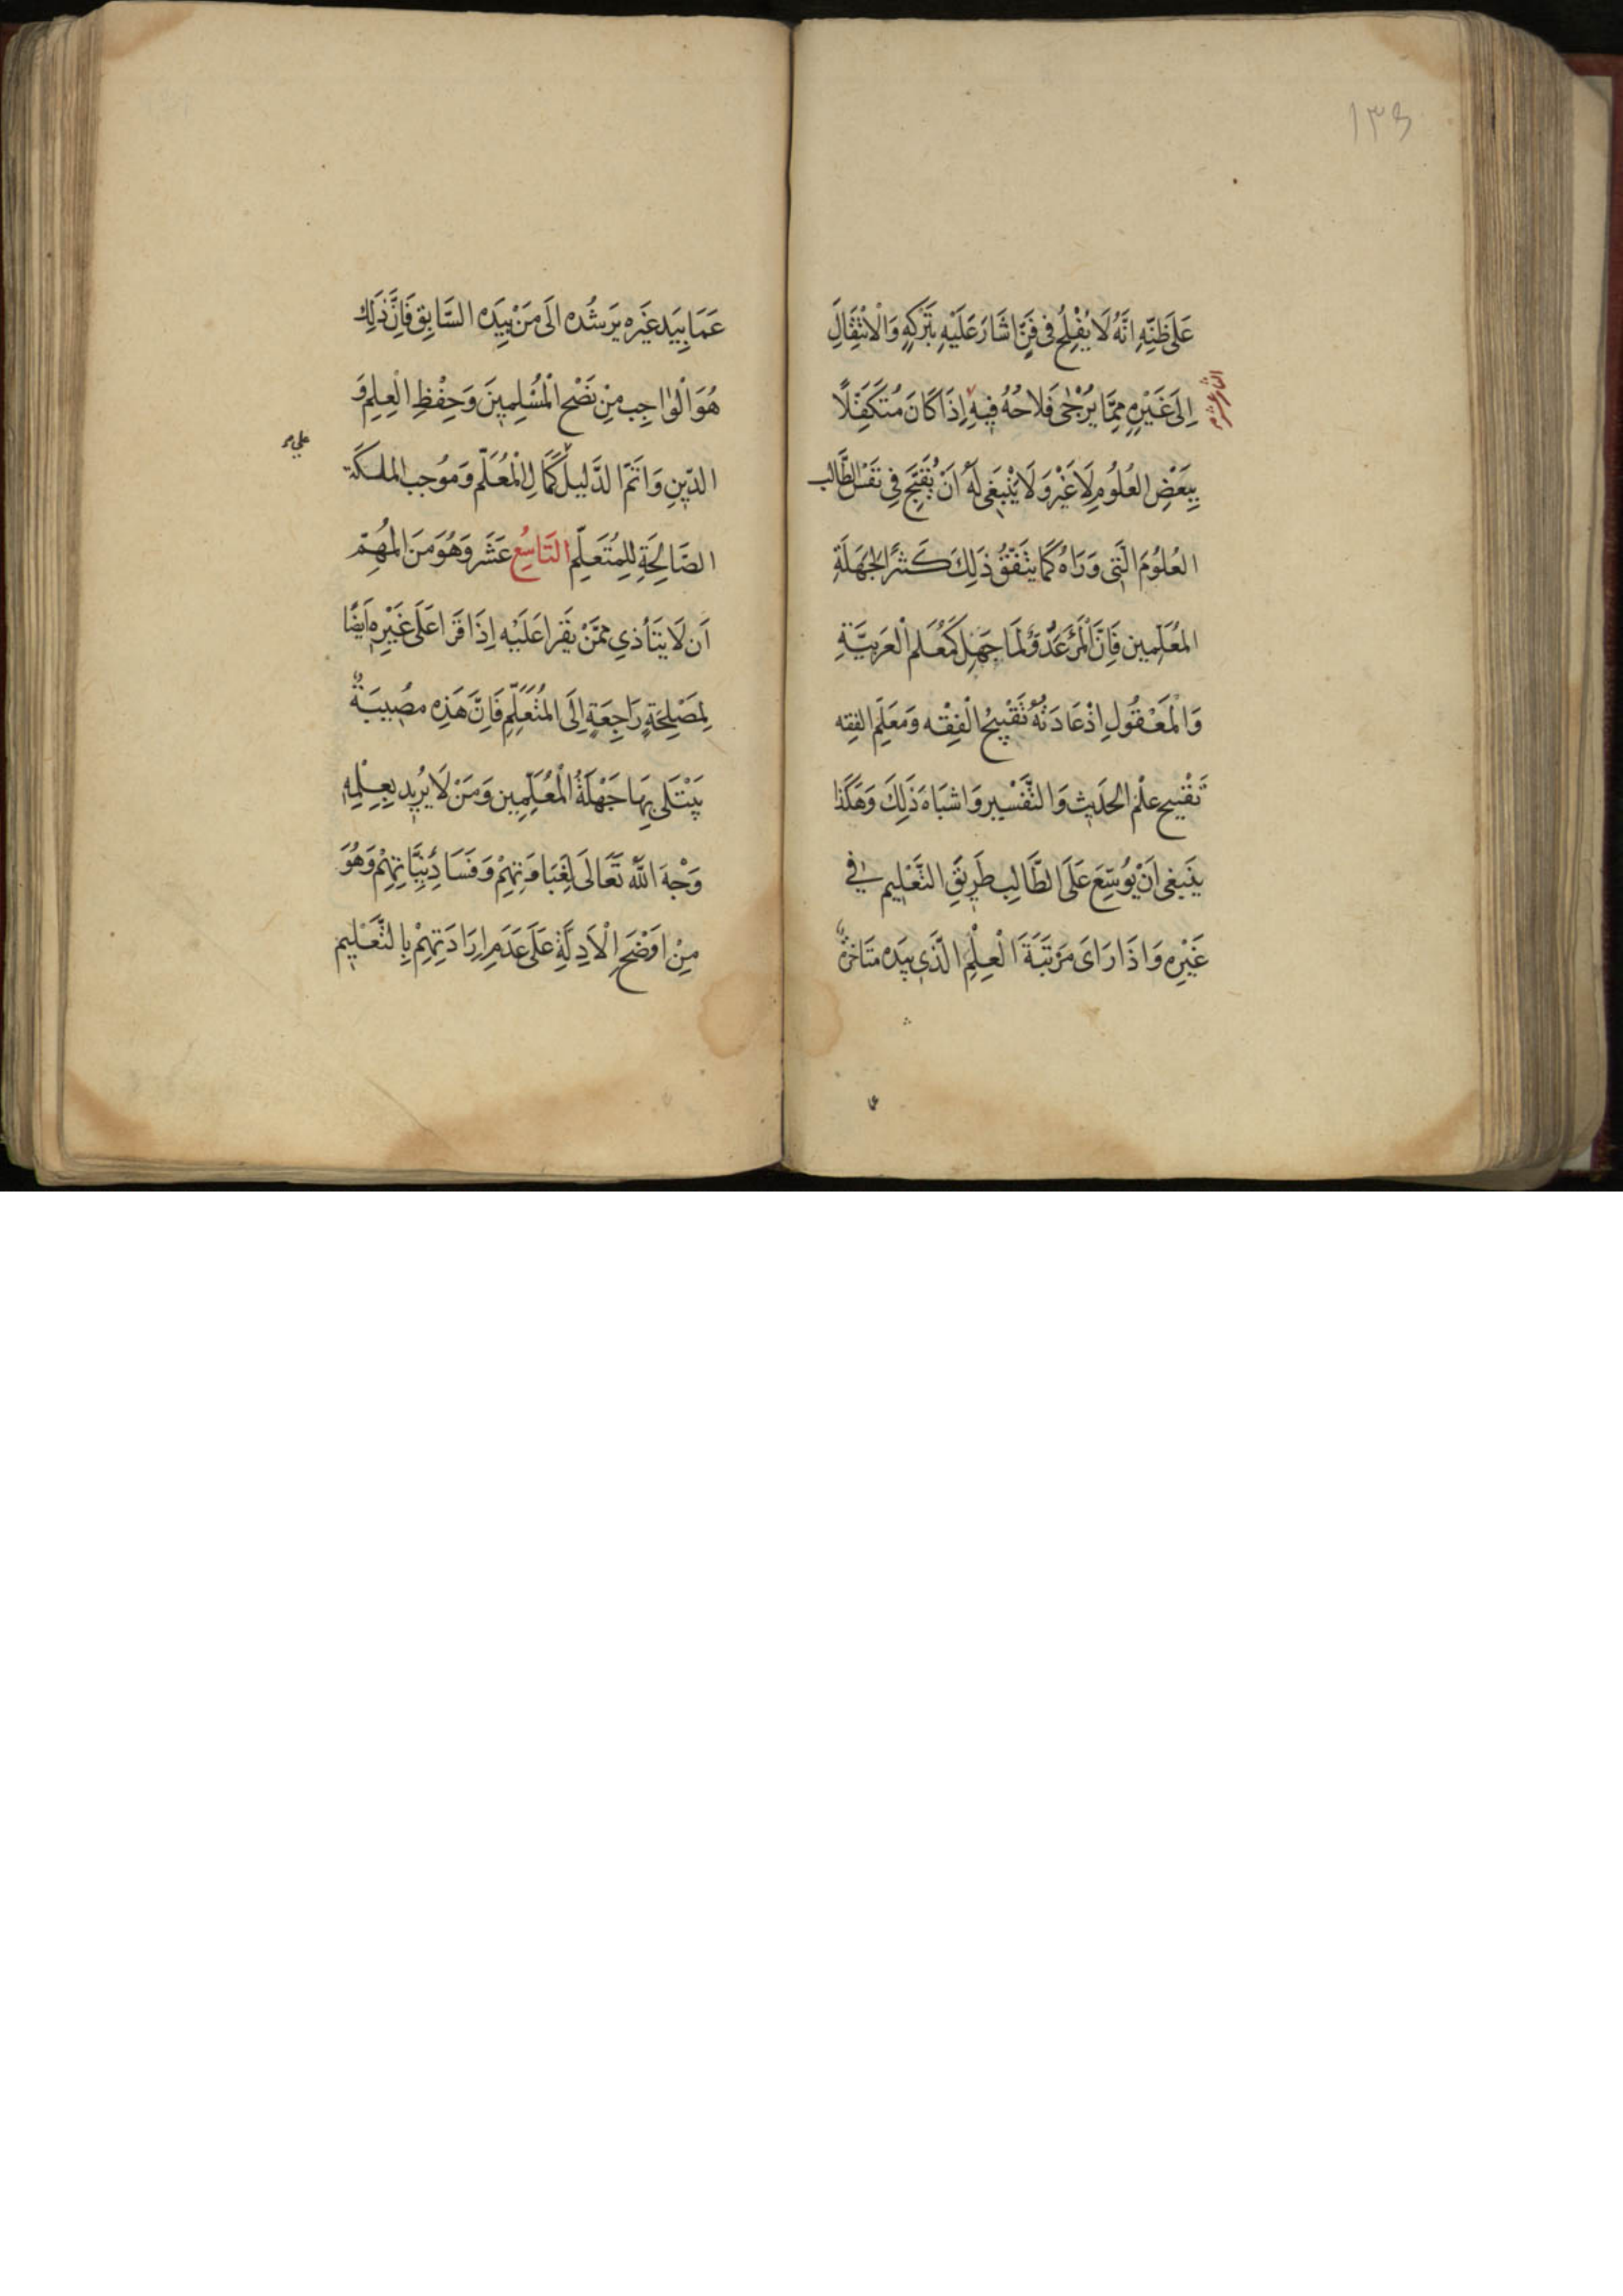 ١٣٥
عَلَى ظَنِّهِ اَنَّهُ لَا يُفْلِحُ فى فَنٍّ اَشَارَ عَلَيْهِ بِتَرْكِهِ وَالْاِنْتِقَالِ
اِلَى غَيْرِهِ مِمَّا يُرْجٰى فَلَاحُهُ فِيهِ اِذَا كَانَ مُتَكَفِّلًا
بِبَعْضِ العُلُومِ لَا غَيْرَ وَلَا يَنْبَغى لَهُ اَنْ يُقَبِّحَ فِى نَفْسِ الطَّالِب
العُلُومَ الَّتِى وَرَاهُ كَمَا يَتَّفِقُ ذَلِكَ كَثِيرًا لِجَهَلَةِ
المُعَلِّمِين فَاِنَّ الْمَرْءَ عَدُوٌّ لِمَا جَهِلَ كَمُعَلِّمِ الْعَرَبِيَّةِ
وَالْمَعْقُولِ اِذْ عَادَتُهُ تَقْبِيحُ الْفِقْهِ وَمُعَلِّمِ الفِقه
تَقْبِيحِ عِلْمِ الحَدِيثِ وَالتَّفْسِيرِ وَاَشْبَاهَ ذَلِكَ وَهَكَذَا
يَنْبَغِى اَنْ يُوسِّعَ عَلَى الطَّالِبِ طَرِيقَ التَّعْلِيم في
غَيْرِهِ وَاِذَا رَاَى مَرْتَبَةَ الْعِلْمِ الَّذِى بِيَدِه مُتَاَخِّرَةً
عَمَّا بِيَدِ غَيْرِهِ يُرْشِدُه اِلَى مَنْ بِيَدِه السَّابِقِ فَاِنَّ ذَلِكَ
هُوَ الْوَاجِب مِنْ نُصْحِ الْمُسْلِمِينَ وَحِفْظِ الْعِلْمِ وَ
الدّينِ وَاَتَمُّ الدَّلِيلِ عَلَى كَمَالِ الْمُعَلِّم وَمُوجِب الملكَة
الصَّالِحَةِ لِلمُتَعَلِّم التَّاسِعُ عَشَر وَهُوَ مِنَ المُهِمِّ
اَن لَا يَتَأَذى مِمَّنْ يَقْرَا عَلَيْهِ اِذَا قَرَا عَلَى غَيْرِهِ اَيضًا
لِمَصْلِحَةٍ رَاجِعَةٍ اِلَى المُتَعَلِّمِ فَاِنَّ هَذِهِ مُصِيبَةٌ
يَبْتَلى بِهَا جَهْلَةُ الْمُعَلِّمِين وَمَنْ لَا يُرِيد بِعِلْمِهِ
وَجْهَ اللّٰه تَعَالَى لِغَبَاوَتِهِمْ وَفَسَادِ نِيَّاتِهِمْ وَهُوَ
مِنْ اَوْضَحِ الْاَدِلَّةِ عَلَى عَدَمِ اِرَادَتِهِمْ بِالتَّعْلِيم